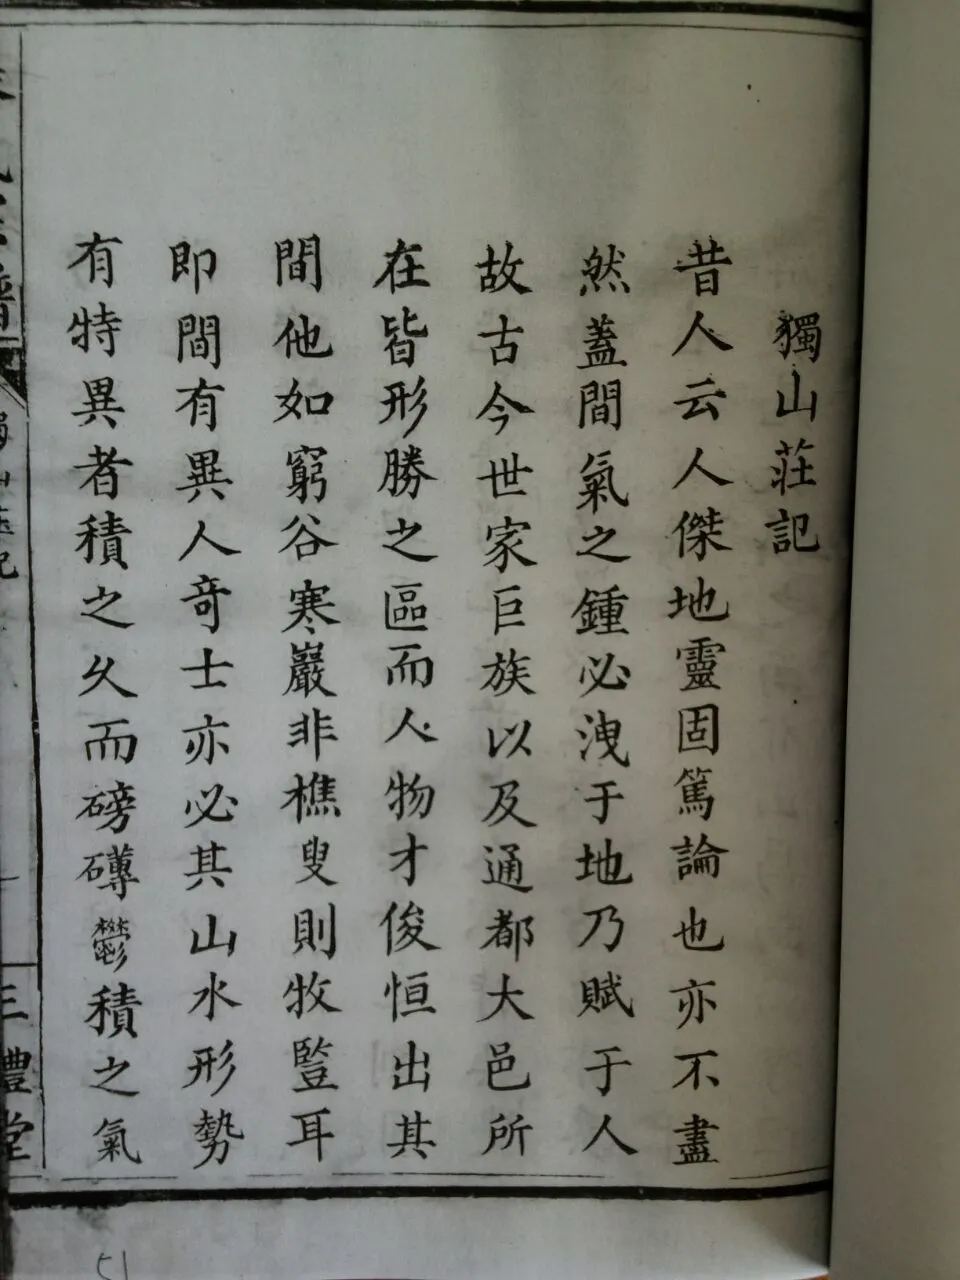 獨山莊記
昔人云人傑地靈固篤論也亦不盡
然蓋間氣之鍾必洩于地乃賦于人
故古今世家巨族以及通都大邑所
在皆形勝之區而人物才俊恒出其
間他如窮谷寒巖非樵叟則牧豎耳
即間有異人竒士亦必其山水形勢
有特異者積之乆而磅礴鬱積之氣
獨山莊記
三禮堂
51